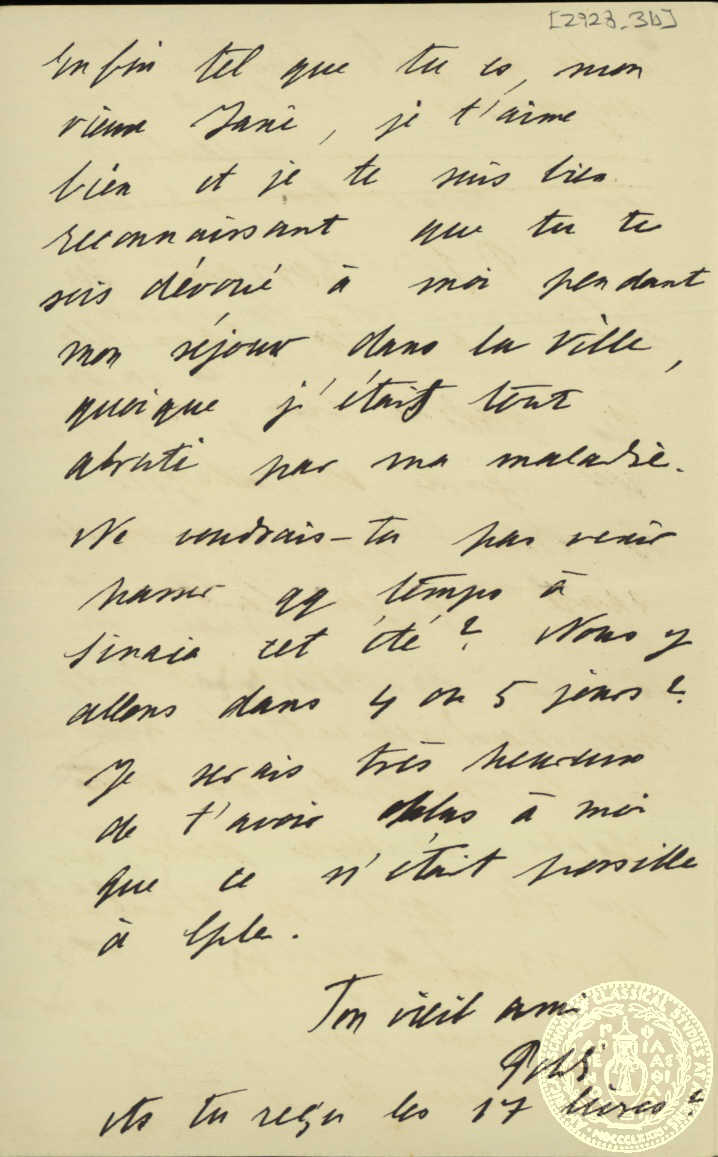 [2928_3b]
Enfin tel que tu es, mon
vieux Jani, je t'aime
bien et je te suis bien
reconnaissant que tu te
sois dévoué à moi pendant
mon séjour dans la Ville,
quoique j'étais tout
abruti par ma maladie.
Ne voudrais-tu pas venir
passer qq temps à
Sinaia cet été? Nous y
allons dans 4 ou 5 jours?
Je serais très heureux
de t'avoir plus à moi
que ce n'était possible
à Cple.
Ton vieil ami
As tu reçu les 17 livres?
SCHOOL OF CLASSICAL STUDIES AT
MDCCCLXXXI